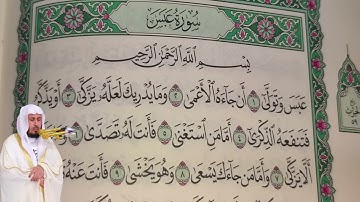 سُورَةُ عَبَسَ
بِسْمِ اللَّهِ الرَّحْمَٰنِ الرَّحِيمِ
عَبَسَ وَتَوَلَّىٰ ١ أَن جَاءَهُ الْأَعْمَىٰ ٢ وَمَا يُدْرِيكَ لَعَلَّهُ يَزَّكَّىٰ ٣ أَوْ يَذَّكَّرُ
فَتَنفَعَهُ الذِّكْرَىٰ ٤ أَمَّا مَنِ اسْتَغْنَىٰ ٥ فَأَنتَ لَهُ تَصَدَّىٰ ٦
أَلَّا يَزَّكَّىٰ ٧ وَأَمَّا مَن جَاءَكَ يَسْعَىٰ ٨ وَهُوَ يَخْشَىٰ ٩ فَأَنتَ عَنْهُ